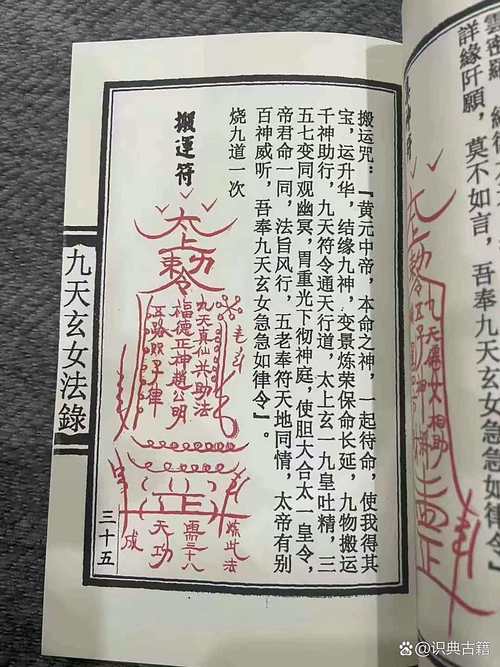 雲密羅
詳緣阡願，莫不如言，吾奉九天玄女急急如律令
搬运咒：『黄元中帝，本命之神，一起待命，使我得其
宝，运升华，结缘九神，变景炼荣保命长延，九物搬运
千神助行，九天符令通天行道，太上玄一九皇吐精，三
五七变同观幽冥，胃重光下彻神庭，使胆大合太一皇令，
帝君命一同，法旨风行，五老奉符天地同情，太帝有别
百神威听，吾奉九天玄女急急如律令』。
烧九道一次
搬運符
太上
敕令
九天真仙共助法
福德正神趙公明
正
炼此法
需三十八
天功
成
九天玄女法錄
三十五
九天
相助
正
识典古籍